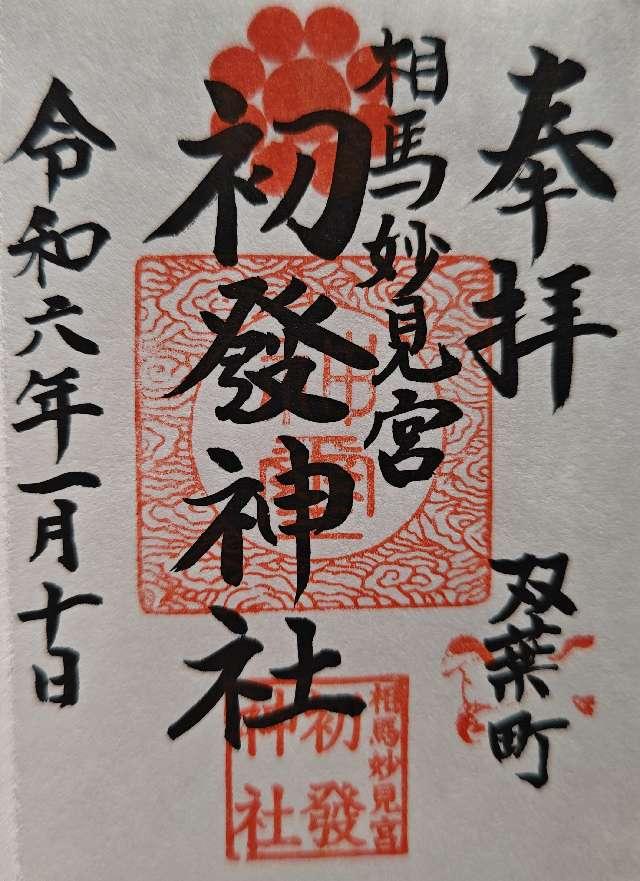 奉拝
双葉町
相馬妙見宮
初發神社
令和六年一月十日
相馬妙見宮
初發
神社